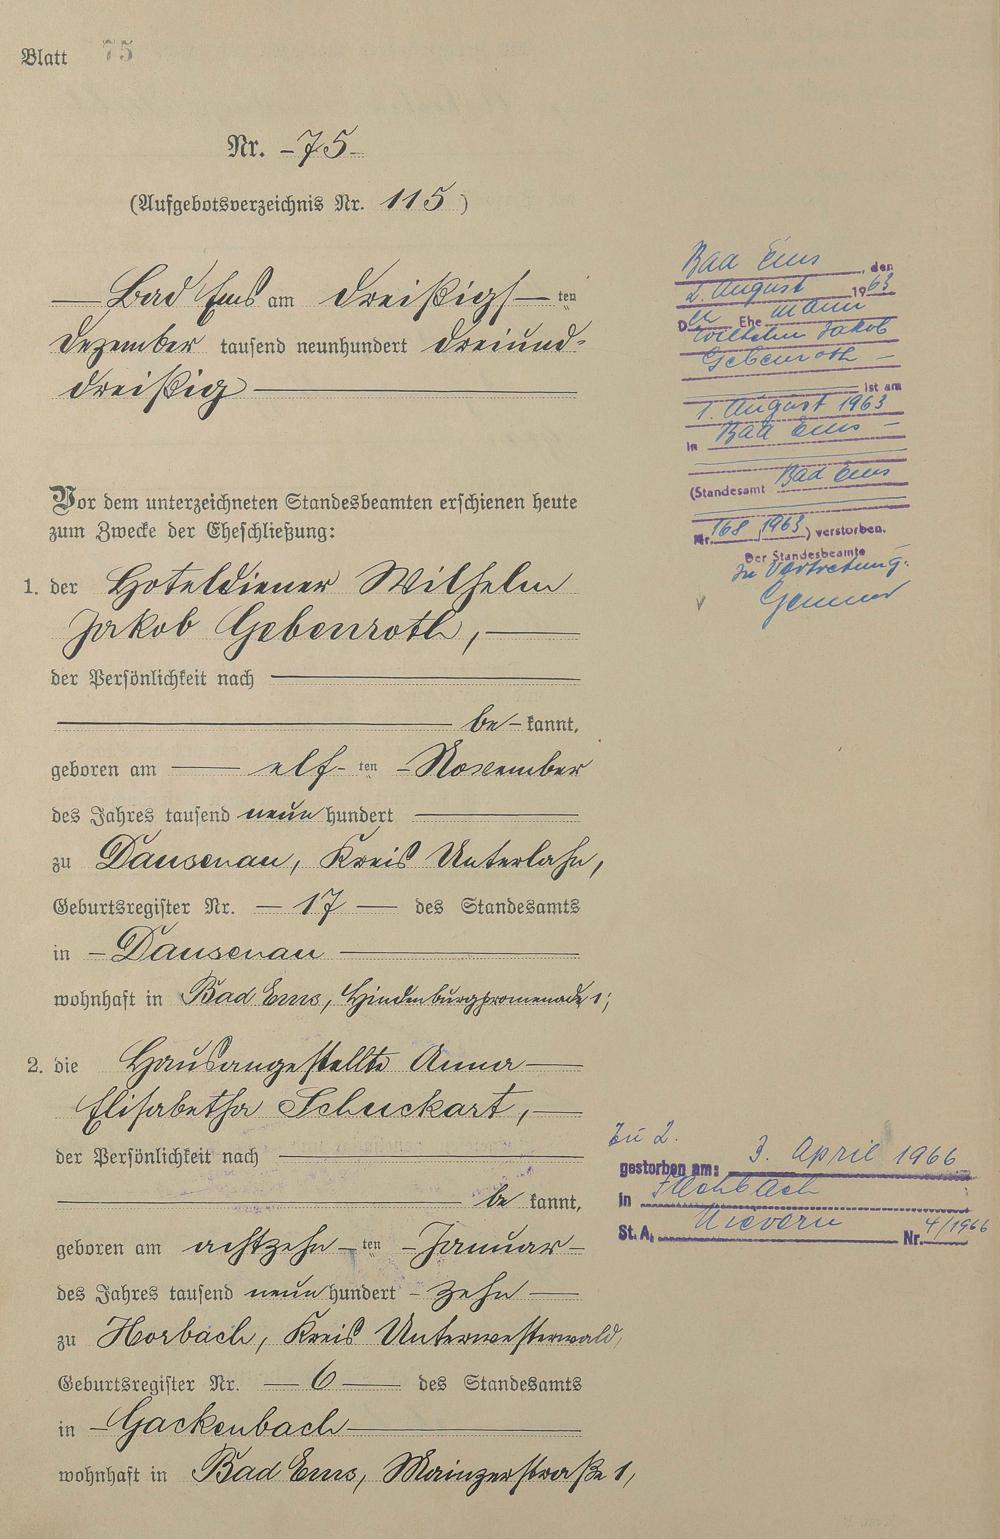 Blatt 75
Nr. -75-
(Aufgebotsverzeichnis Nr. 115)
Bad Ems am dreißigs ten
Dezember tausend neunhundert dreiund-
dreißig
Vor dem unterzeichneten Standesbeamten erschienen heute
zum Zwecke der Eheschließung:
1. der Hoteldiener Wilhelm
Jakob Gebenroth,
der Persönlichkeit nach
be- kannt,
geboren am elf- ten November
des Jahres tausend neun hundert
zu Dausenau, Kreis Unterlahn,
Geburtsregister Nr. 17 des Standesamts
in Dausenau
wohnhaft in Bad Ems, Hindenburgpromenade 1;
2. die Hausangestellte Anna
Elisabetha Schuckart,
der Persönlichkeit nach
be kannt,
geboren am achtzehn ten Januar
des Jahres tausend neun hundert zehn
zu Horbach, Kreis Unterwesterwald,
Geburtsregister Nr. 6 des Standesamts
in Gackenbach
wohnhaft in Bad Ems, Mainzerstraße 1,
Bad Ems, den
2. August 1963
Der Ehe mann
Wilhelm Jakob
Gebenroth
ist am
1. August 1963
in Bad Ems
(Standesamt Bad Ems
Nr. 168/1963) verstorben.
Der Standesbeamte
In Vertretung:
Zu 2.
gestorben am: 3. April 1966
in Fachbach
St. A. Nievern Nr. 4/1966